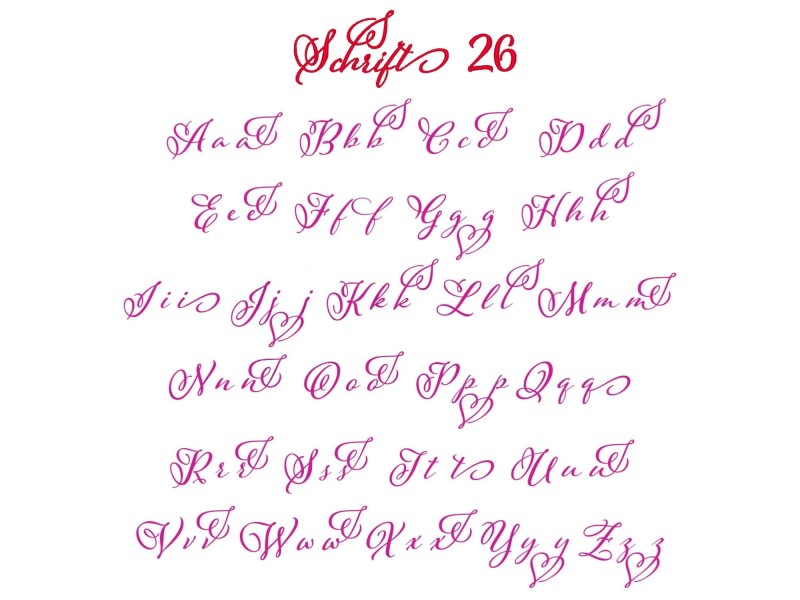 Schrift 26
Aaa Bbb Ccc Ddd
Eee Fff Ggg Hhh
Iii Jjj Kkk Lll Mmm
Nnn Ooo Ppp Qqq
Rrr Sss Ttt Uuu
Vvv Www Xxx Yyy Zzz